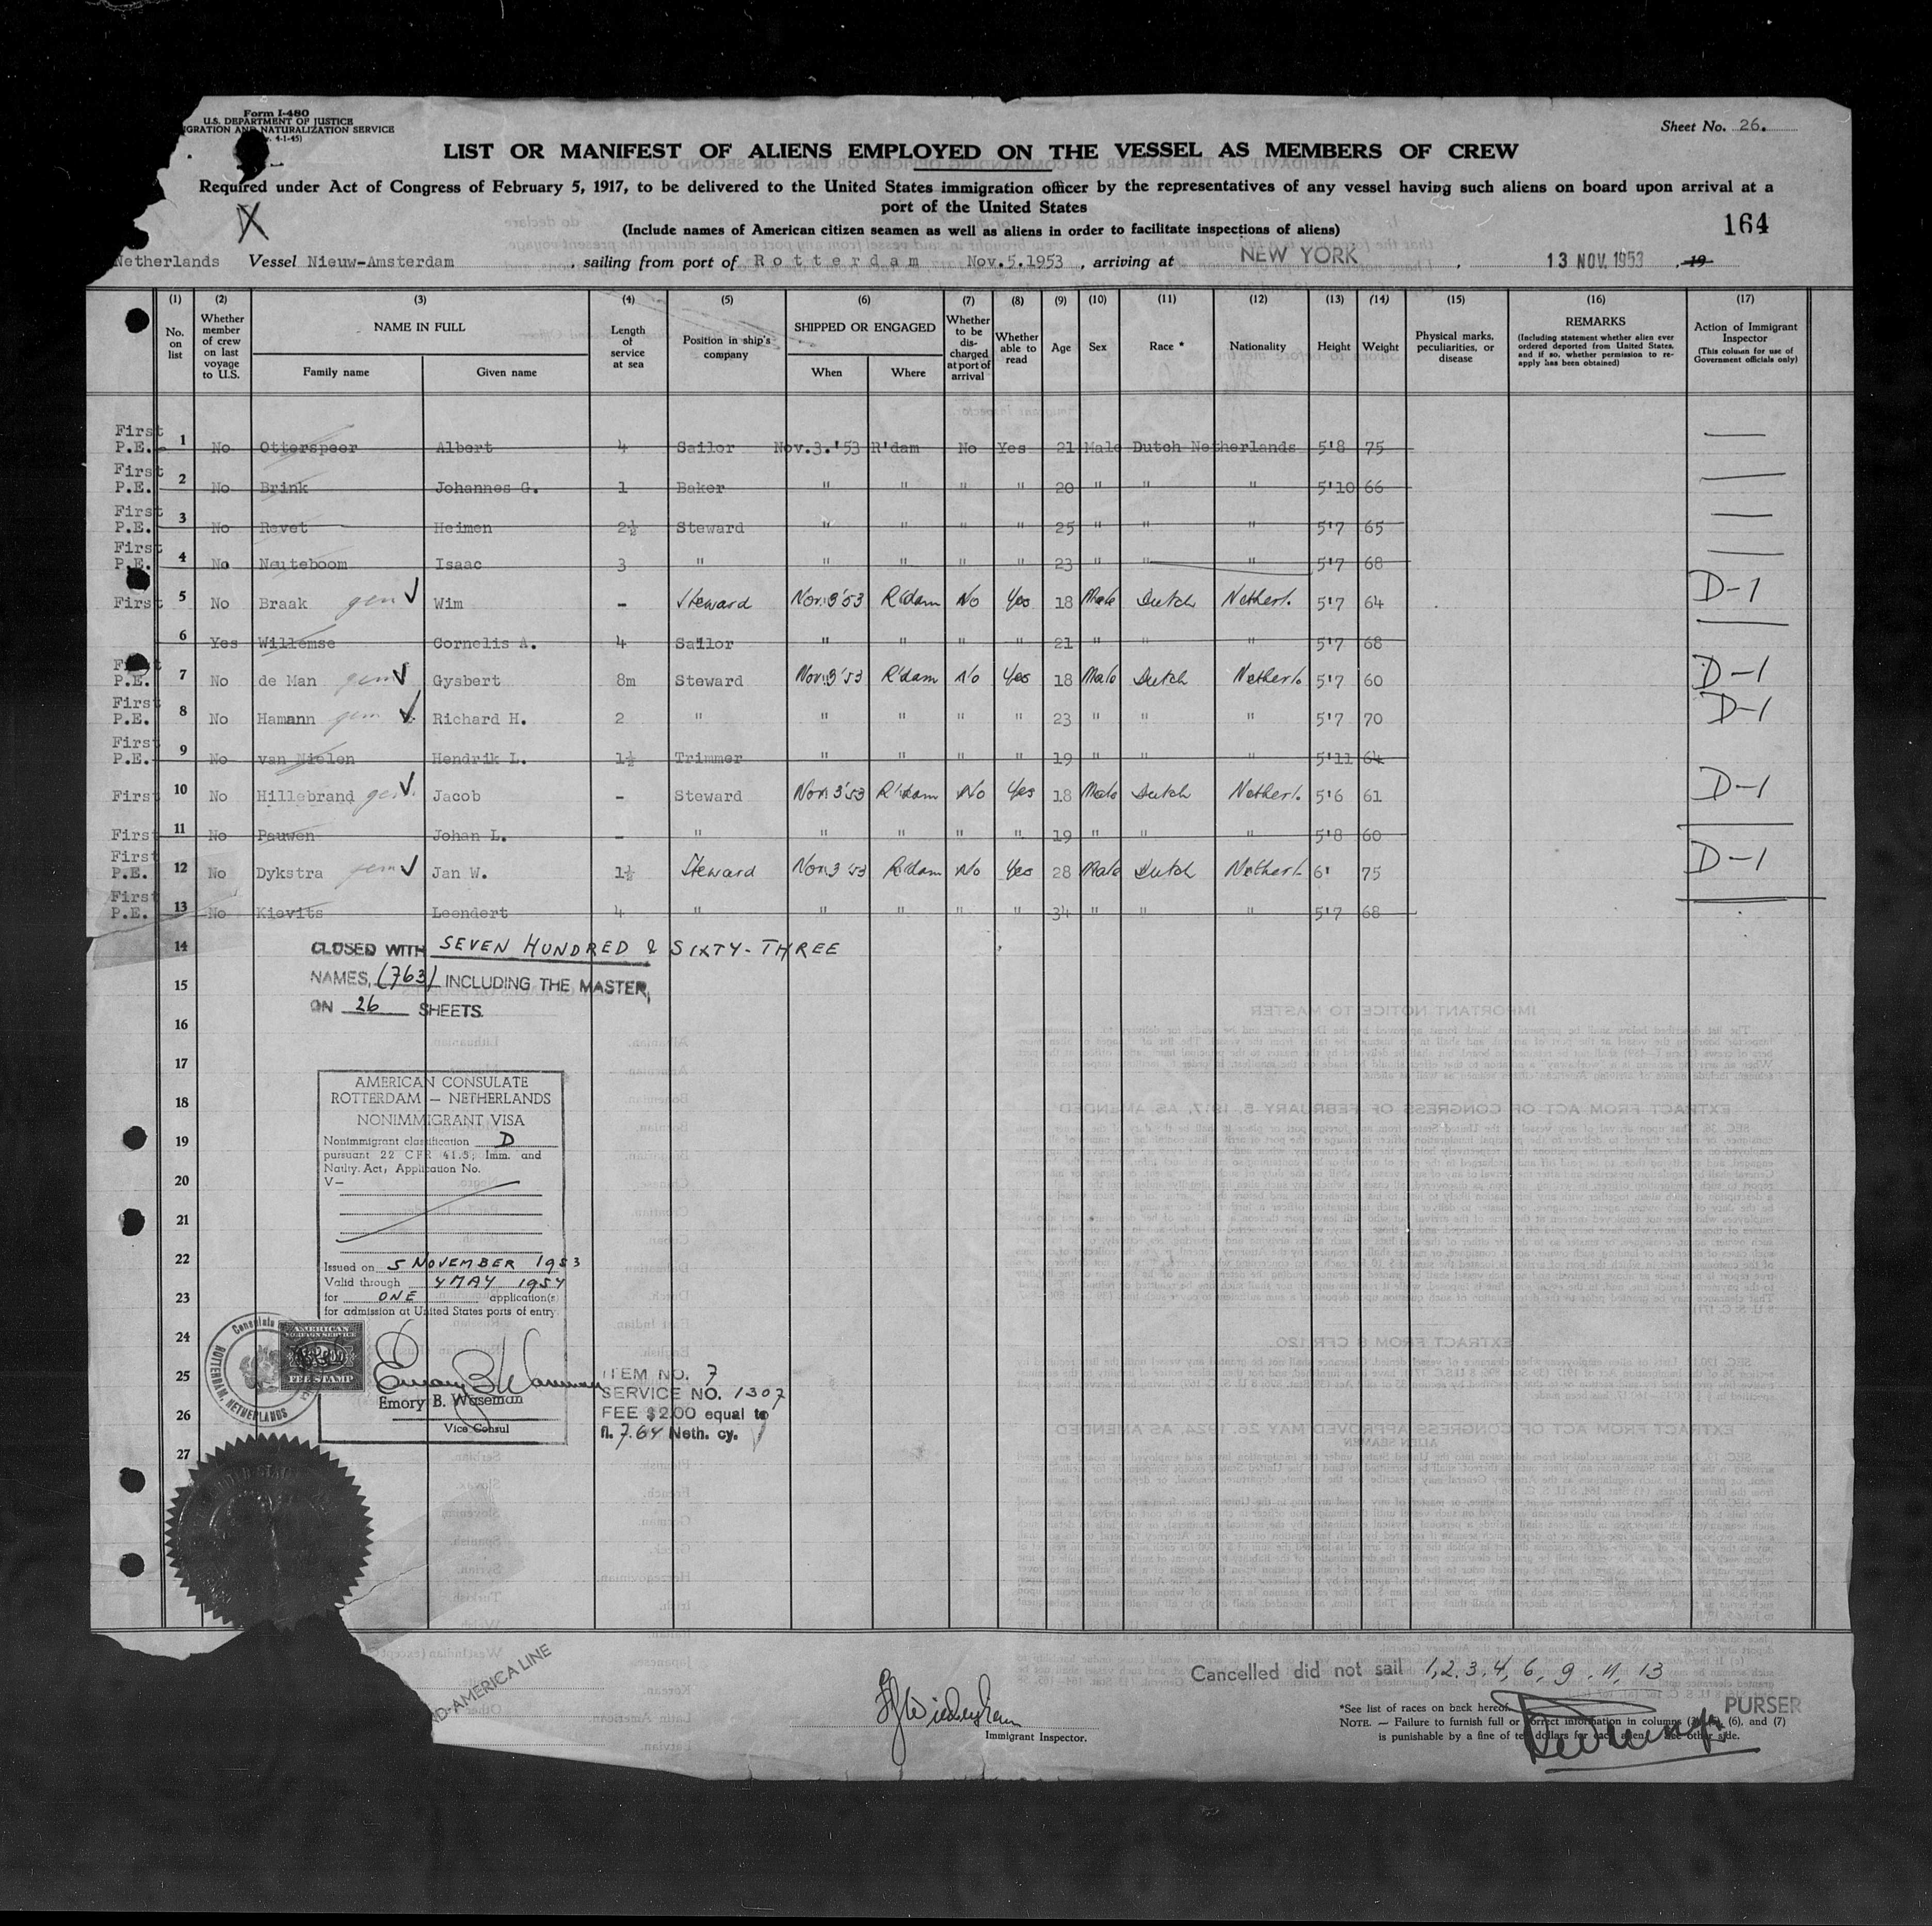 Form I-480
U.S. DEPARTMENT OF JUSTICE
IGRATION AND NATURALIZATION SERVICE
4-1-45)
Sheet No. 26.
LIST OR MANIFEST OF ALIENS EMPLOYED ON THE VESSEL AS MEMBERS OF CREW
Required under Act of Congress of February 5, 1917, to be delivered to the United States immigration officer by the representatives of any vessel having such aliens on board upon arrival at a
port of the United States
X
(Include names of American citizen seamen as well as aliens in order to facilitate inspections of aliens)
164
Netherlands Vessel Nieuw-Amsterdam, sailing from port of Rotterdam Nov.5.1953, arriving at NEW YORK, 13 NOV. 1953, 19
(1) (2) (3) (4) (5) (6) (7) (8) (9) (10) (11) (12) (13) (14) (15) (16) (17)
No. on list
Whether member of crew on last voyage to U.S.
NAME IN FULL
Family name
Given name
Length of service at sea
Position in ship's company
SHIPPED OR ENGAGED
When
Where
Whether to be discharged at port of arrival
Whether able to read
Age
Sex
Race *
Nationality
Height
Weight
Physical marks, peculiarities, or disease
REMARKS
(Including statement whether alien ever ordered deported from United States, and if so, whether permission to re-apply has been obtained)
Action of Immigrant Inspector
(This column for use of Government officials only)
First P.E. 1 No Otterspeer Albert 4 Sailor Nov.3.'53 R'dam No Yes 21 Male Dutch Netherlands 5'8 75 —
First P.E. 2 No Brink Johannes G. 1 Baker " " " " 20 " " " 5'10 66 —
First P.E. 3 No Revet Heimen 2½ Steward " " " " 25 " " " 5'7 65 —
First P.E. 4 No Neuteboom Isaac 3 " " " " " 23 " " " 5'7 68 —
First 5 No Braak gem ✓ Wim - Steward Nov.3'53 R'dam No Yes 18 Male Dutch Netherl. 5'7 64 D-1
6 Yes Willemse Cornelis A. 4 Sailor " " " " 21 " " " 5'7 68 —
First P.E. 7 No de Man gem ✓ Gysbert 8m Steward Nov.3'53 R'dam No Yes 18 Male Dutch Netherl. 5'7 60 D-1
First P.E. 8 No Hamann gem ✓ Richard H. 2 " " " " " 23 " " " 5'7 70 D-1
First P.E. 9 No van Nielen Hendrik L. 1½ Trimmer " " " " 19 " " " 5'11 64
First 10 No Hillebrand gem ✓ Jacob - Steward Nov.3'53 R'dam No Yes 18 Male Dutch Netherl. 5'6 61 D-1
First 11 No Pauwen Johan L. - " " " " " 19 " " " 5'8 60 —
First P.E. 12 No Dykstra gem ✓ Jan W. 1½ Steward Nov.3'53 R'dam No Yes 28 Male Dutch Netherl. 6' 75 D-1
First P.E. 13 No Kievits Leendert 4 " " " " " 34 " " " 5'7 68 —
14 CLOSED WITH SEVEN HUNDRED & SIXTY-THREE
15 NAMES, (763) INCLUDING THE MASTER,
ON 26 SHEETS.
16
17
AMERICAN CONSULATE
18 ROTTERDAM — NETHERLANDS
NONIMMIGRANT VISA
19 Nonimmigrant classification D
pursuant 22 CFR 41.5; Imm. and
Natlty. Act, Application No.
20 V—
21
22 Issued on 5 NOVEMBER 1953
Valid through 4 MAY 1954
23 for ONE application(s)
for admission at United States ports of entry.
24
25
26
27
ROTTERDAM, NETHERLANDS
AMERICAN
FOREIGN SERVICE
$2.00
FEE STAMP
Emory B. Waseman
Emory B. Waseman
Vice Consul
ITEM NO. 7
SERVICE NO. 1307
FEE $2.00 equal to
fl. 7.64 Neth. cy.
ND-AMERICA LINE
Immigrant Inspector.
Cancelled did not sail 1, 2, 3, 4, 6, 9, 11, 13
*See list of races on back hereof.
PURSER
NOTE. — Failure to furnish full or correct information in columns (3), (5), (6), and (7)
is punishable by a fine of ten dollars for each alien. See other side.